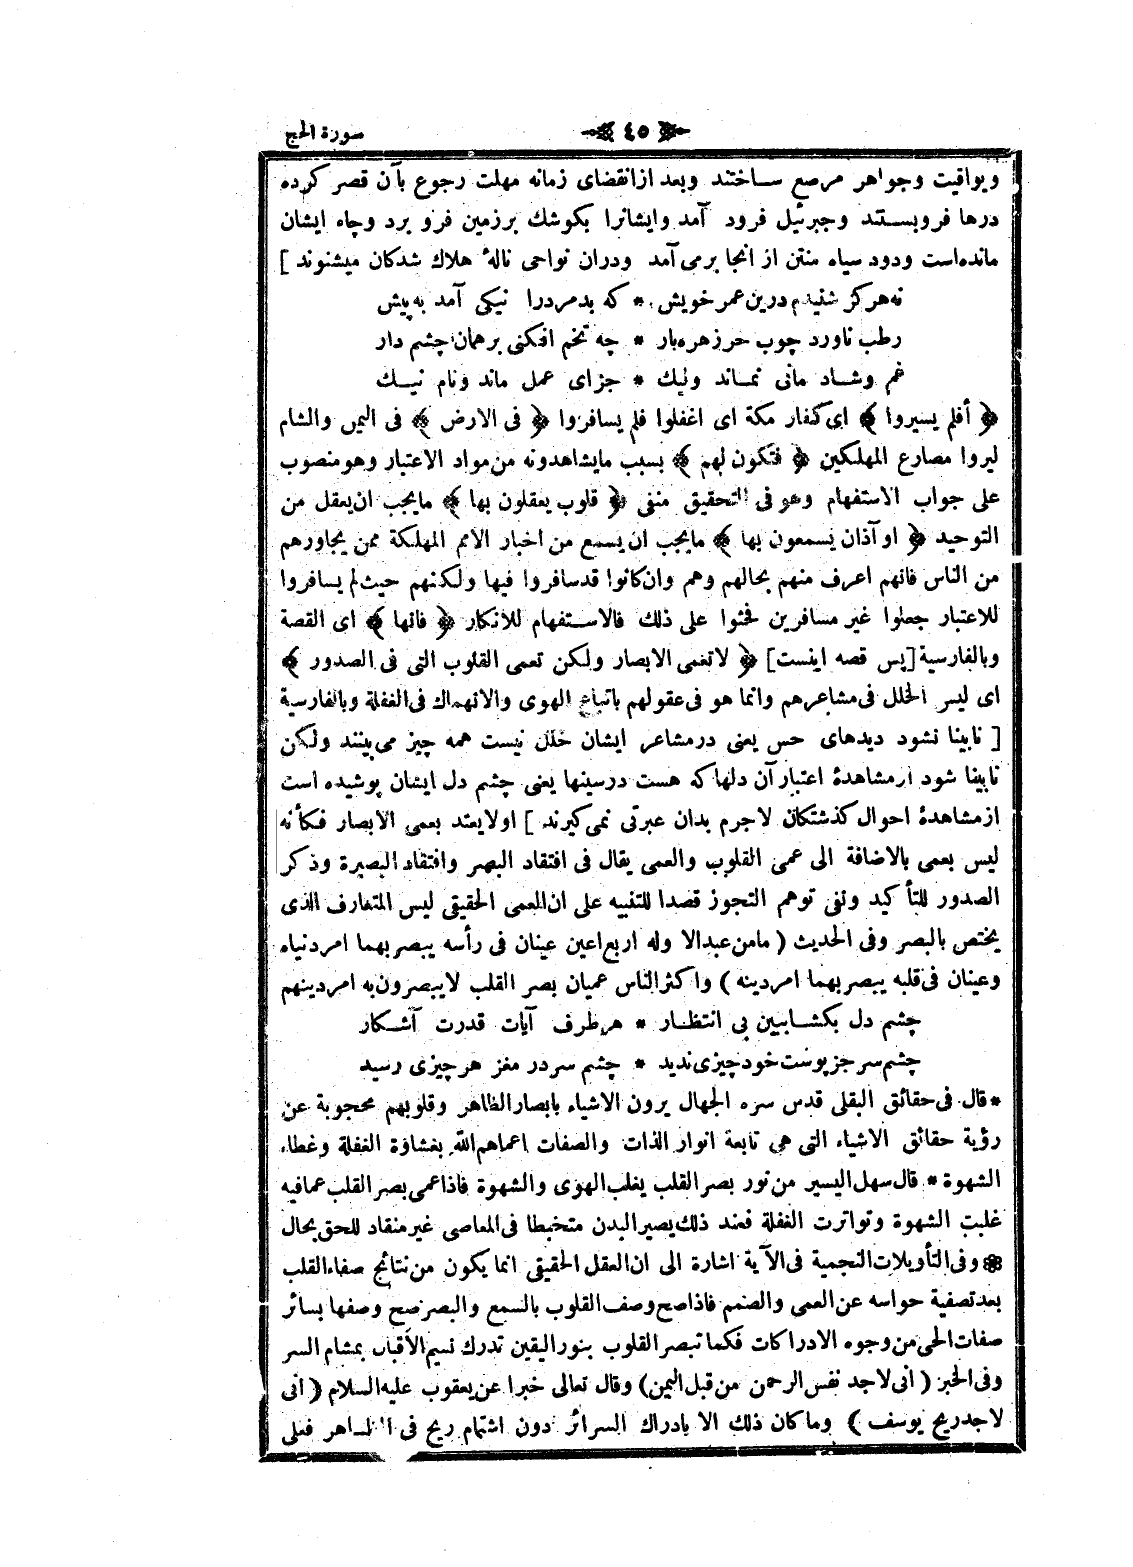 سورة الحج
٤٥
ويواقيت وجواهر مرصع ساختند وبعد ازانقضاى زمانه مهلت رجوع بآن قصر كرده
درها فروبستند وجبرئيل فرود آمد وايشانرا بكوشك برزمين فرو برد وچاه ايشان
مانده‌است ودود سياه منتن از انجا برمى آمد ودران نواحى نالهٔ هلاك شدكان ميشنوند ]
نه‌هركز شنيدم درين عمر خويش * كه بدمردرا نيكى آمد به‌پيش
رطب ناورد چوب خرزهره‌بار * چه تخم افكنى برهمان چشم دار
غم وشاد مانى نماند وليك * جزاى عمل ماند ونام نيك
﴿ أفلم يسيروا ﴾ اى كفار مكة اى اغفلوا فلم يسافروا ﴿ فى الارض ﴾ فى اليمن والشام
ليروا مصارع المهلكين ﴿ فتكون لهم ﴾ بسبب مايشاهدونه من مواد الاعتبار وهو منصوب
على جواب الاستفهام وهو فى التحقيق منفى ﴿ قلوب يعقلون بها ﴾ مايجب ان يعقل من
التوحيد ﴿ او آذان يسمعون بها ﴾ مايجب ان يسمع من اخبار الامم المهلكة ممن يجاورهم
من الناس فانهم اعرف منهم بحالهم وهم وان كانوا قدسافروا فيها ولكنهم حيث لم يسافروا
للاعتبار جعلوا غير مسافرين فحثوا على ذلك فالاستفهام للانكار ﴿ فانها ﴾ اى القصة
وبالفارسية [پس قصه اينست] ﴿ لاتعمى الابصار ولكن تعمى القلوب التى فى الصدور ﴾
اى ليس الخلل فى مشاعرهم وانما هو فى عقولهم باتباع الهوى والانهماك فى الغفلة وبالفارسية
[ نابينا نشود ديدهاى حس يعنى درمشاعر ايشان خلل نيست همه چيز مى بينند ولكن
نابينا شود ازمشاهدهٔ اعتبار آن دلها كه هست درسينها يعنى چشم دل ايشان پوشيده است
از مشاهدهٔ احوال كذشتكان لاجرم بدان عبرتى نمى كيرند ] اولايعتد بعمى الابصار فكأنه
ليس بعمى بالاضافة الى عمى القلوب والعمى يقال فى افتقاد البصر وافتقاد البصيرة وذكر
الصدور للتأكيد ونفى توهم التجوز قصدا للتنبيه على ان العمى الحقيقى ليس المتعارف الذى
يختص بالبصر وفى الحديث ( مامن عبد الا وله اربع اعين عينان فى رأسه يبصر بهما امر دنياه
وعينان فى قلبه يبصر بهما امر دينه ) واكثر الناس عميان بصر القلب لايبصرون به امر دينهم
چشم دل بكشا ببين بى انتظار * هر طرف آيات قدرت آشكار
چشم سر جز پوست خود چيزى نديد * چشم سر در مغز هر چيزى رسيد
* قال فى حقائق البقلى قدس سره الجهال يرون الاشياء بابصار الظاهر وقلوبهم محجوبة عن
رؤية حقائق الاشياء التى هى تابعة انوار الذات والصفات اعماهم الله بغشاوة الغفلة وغطاء
الشهوة * قال سهل اليسير من نور بصر القلب يغلب الهوى والشهوة فاذا عمى بصر القلب عمافيه
غلبت الشهوة وتواترت الغفلة فعند ذلك يصير البدن متخبطا فى المعاصى غير منقاد للحق بحال
* وفى التأويلات النجمية فى الآية اشارة الى ان العقل الحقيقى انما يكون من نتائج صفاء القلب
بعد تصفية حواسه عن العمى والصمم فاذا صح وصف القلوب بالسمع والبصر صح وصفها بسائر
صفات الحى من وجوه الادراكات فكما تبصر القلوب بنور اليقين تدرك نسيم الاقبال بمشام السر
وفى الخبر ( انى لاجد نفس الرحمن من قبل اليمن) وقال تعالى خبرا عن يعقوب عليه السلام ( انى
لاجد ريح يوسف ) وما كان ذلك الا بادراك السرائر دون اشتمام ريح فى الظاهر فعلى